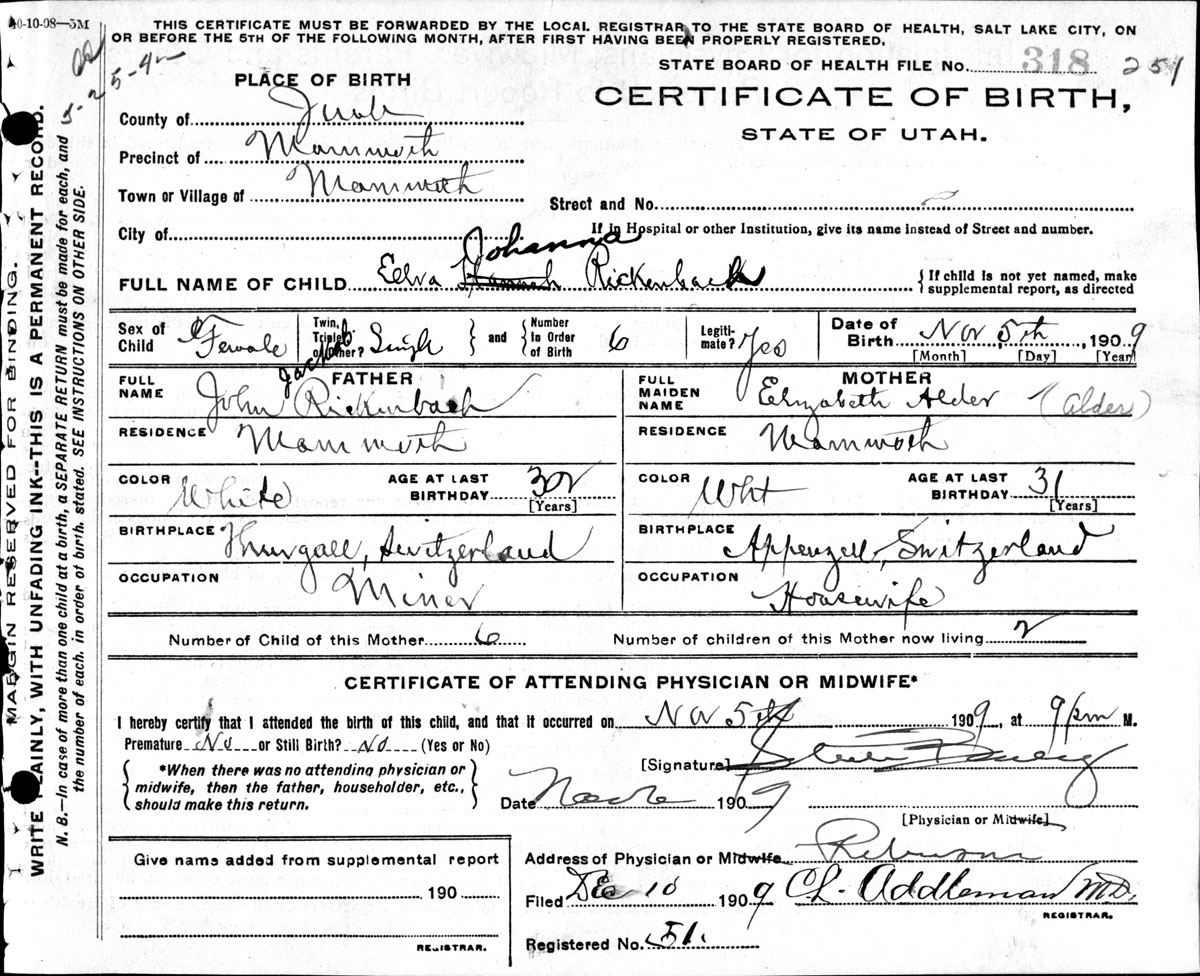 10-10-08—5M
THIS CERTIFICATE MUST BE FORWARDED BY THE LOCAL REGISTRAR TO THE STATE BOARD OF HEALTH, SALT LAKE CITY, ON
OR BEFORE THE 5TH OF THE FOLLOWING MONTH, AFTER FIRST HAVING BEEN PROPERLY REGISTERED.
STATE BOARD OF HEALTH FILE No. 318 251
5-25-42
MARGIN RESERVED FOR BINDING.
WRITE PLAINLY, WITH UNFADING INK--THIS IS A PERMANENT RECORD.
N. B.—In case of more than one child at a birth, a SEPARATE RETURN must be made for each, and
the number of each, in order of birth, stated. SEE INSTRUCTIONS ON OTHER SIDE.
PLACE OF BIRTH
CERTIFICATE OF BIRTH,
STATE OF UTAH.
County of Juab
Precinct of Mammoth
Town or Village of Mammoth
Street and No.
City of
If in Hospital or other Institution, give its name instead of Street and number.
Johanna
FULL NAME OF CHILD Edva Hannah Rickenback
{If child is not yet named, make
supplemental report, as directed
Sex of Child Female
Twin, Triplet or other? Singl } and { Number In Order of Birth 6
Legitimate? Yes
Date of Birth Nov 5th, 1909
[Month] [Day] [Year]
FATHER
FULL NAME John Jacob Rickenbach
RESIDENCE Mammoth
COLOR White
AGE AT LAST BIRTHDAY 32
[Years]
BIRTHPLACE Thurgall, Switzerland
OCCUPATION Miner
MOTHER
FULL MAIDEN NAME Elizabeth Alder (Alder)
RESIDENCE Mammoth
COLOR Wht
AGE AT LAST BIRTHDAY 31
[Years]
BIRTHPLACE Appenzell, Switzerland
OCCUPATION Housewife
Number of Child of this Mother 6 Number of children of this Mother now living 2
CERTIFICATE OF ATTENDING PHYSICIAN OR MIDWIFE*
I hereby certify that I attended the birth of this child, and that it occurred on Nov 5th 1909, at 9 pm M.
Premature No or Still Birth? No (Yes or No)
{ *When there was no attending physician or
midwife, then the father, householder, etc.,
should make this return. }
[Signature]
Date 1909
[Physician or Midwife]
Give name added from supplemental report
190
REGISTRAR.
Address of Physician or Midwife Robinson
Filed Dec 10 1909 C.L. Addleman M.D.
REGISTRAR.
Registered No. 51.